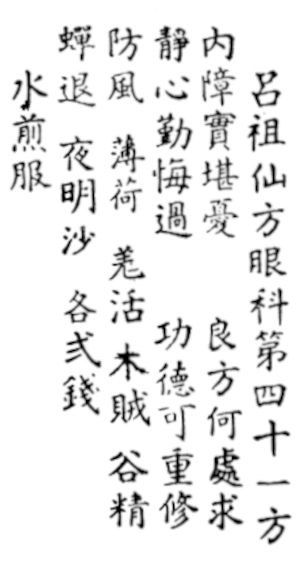 呂祖仙方眼科第四十一方
內障實堪憂 良方何處求
靜心勤悔過 功德可重修
防風 薄荷 羗活 木賊 谷精
蟬退 夜明沙 各弍錢
水煎服